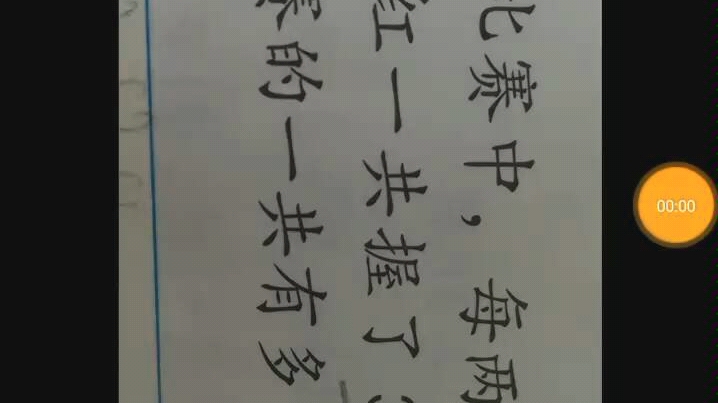 比赛中，每两
红一共握了
的一共有多
00:00